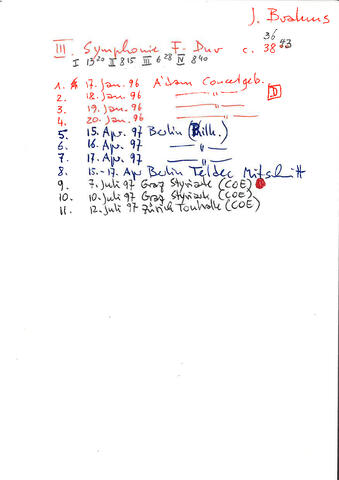 J. Brahms
III. Symphonie F-Dur c. 38 43
36
I 13 20 II 8 15 III 6 28 IV 8 40
1. 17. Jan. 96 A'dam Concertgeb.
2. 18. Jan. 96 — " — D
3. 19. Jan. 96 — " —
4. 20. Jan. 96 — " —
5. 15. Apr. 97 Berlin (Philh.)
6. 16. Apr. 97 — " —
7. 17. Apr. 97 — " —
8. 15.-17. Apr Berlin Teldec Mitschnitt
9. 7. Juli 97 Graz Styriarte (COE)
10. 10. Juli 97 Graz Styriarte (COE)
11. 12. Juli 97 Zürich Tonhalle (COE)